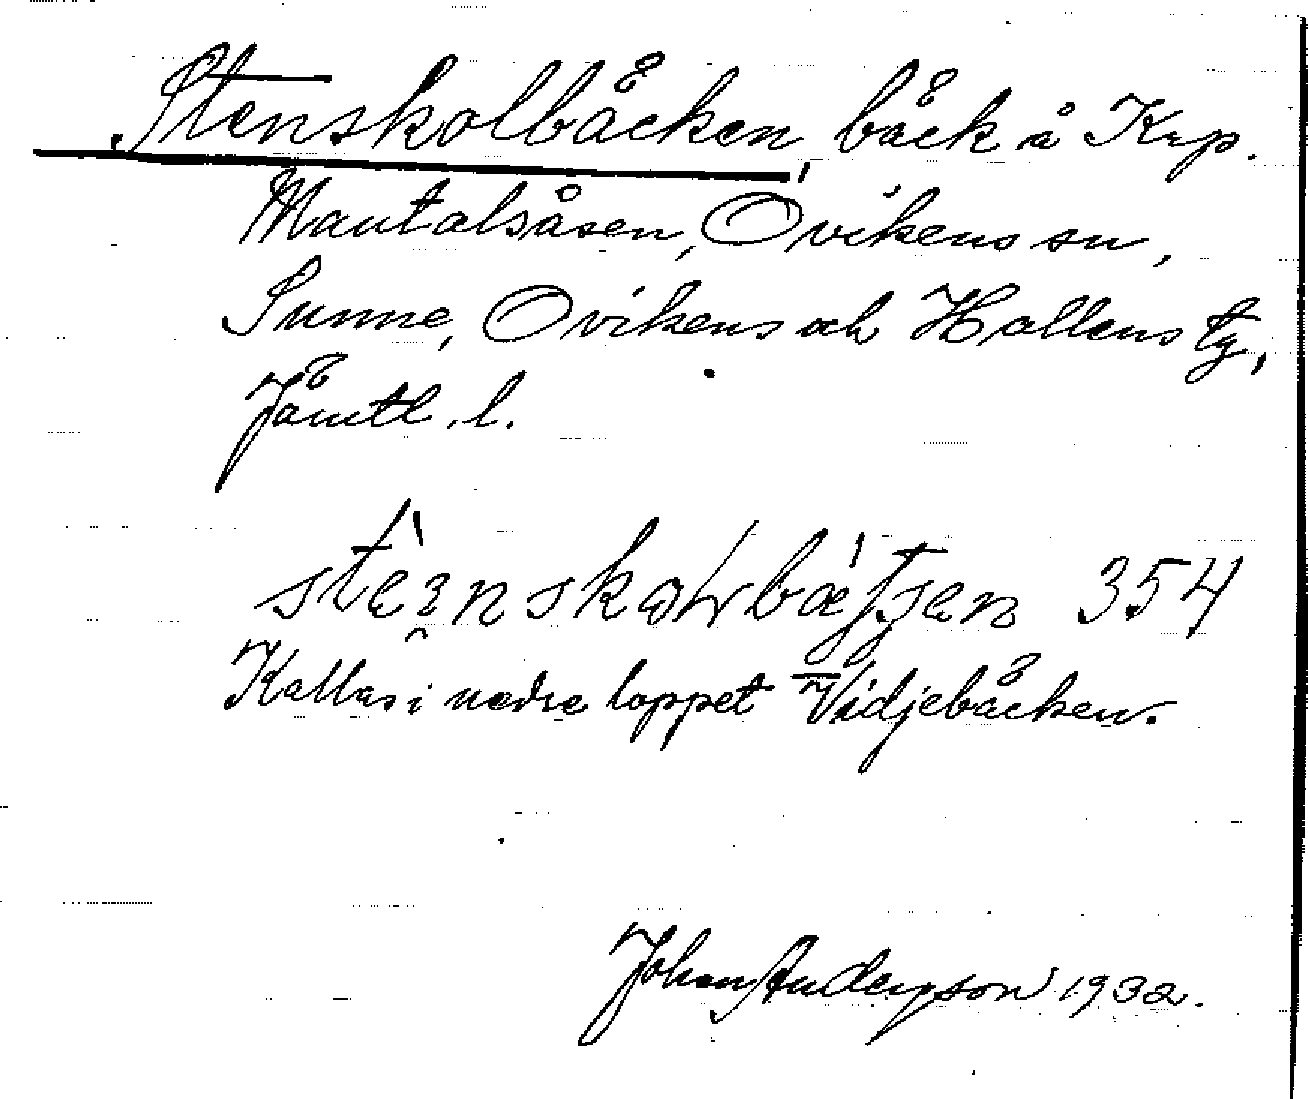 Stenskolbäcken, bäck å Krp.
Mantalsåsen, Ovikens sn,
Sunne, Ovikens och Hallens tg,
Jämtl. l.
354
Kallas i nedre loppet Vidjebäcken.
Johan Anderzson 1932.